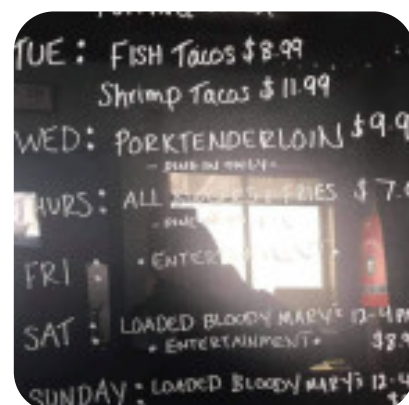 TUE: FISH TACOS $8.99
Shrimp Tacos $11.99
WED: PORKTENDERLOIN $9.9
- DINE-IN ONLY -
THURS: ALL FRIES $7.
FRI • ENTERTAINMENT •
SAT: LOADED BLOODY MARY'S 12-4PM
• ENTERTAINMENT • $8.9
SUNDAY: LOADED BLOODY MARY'S 12-4